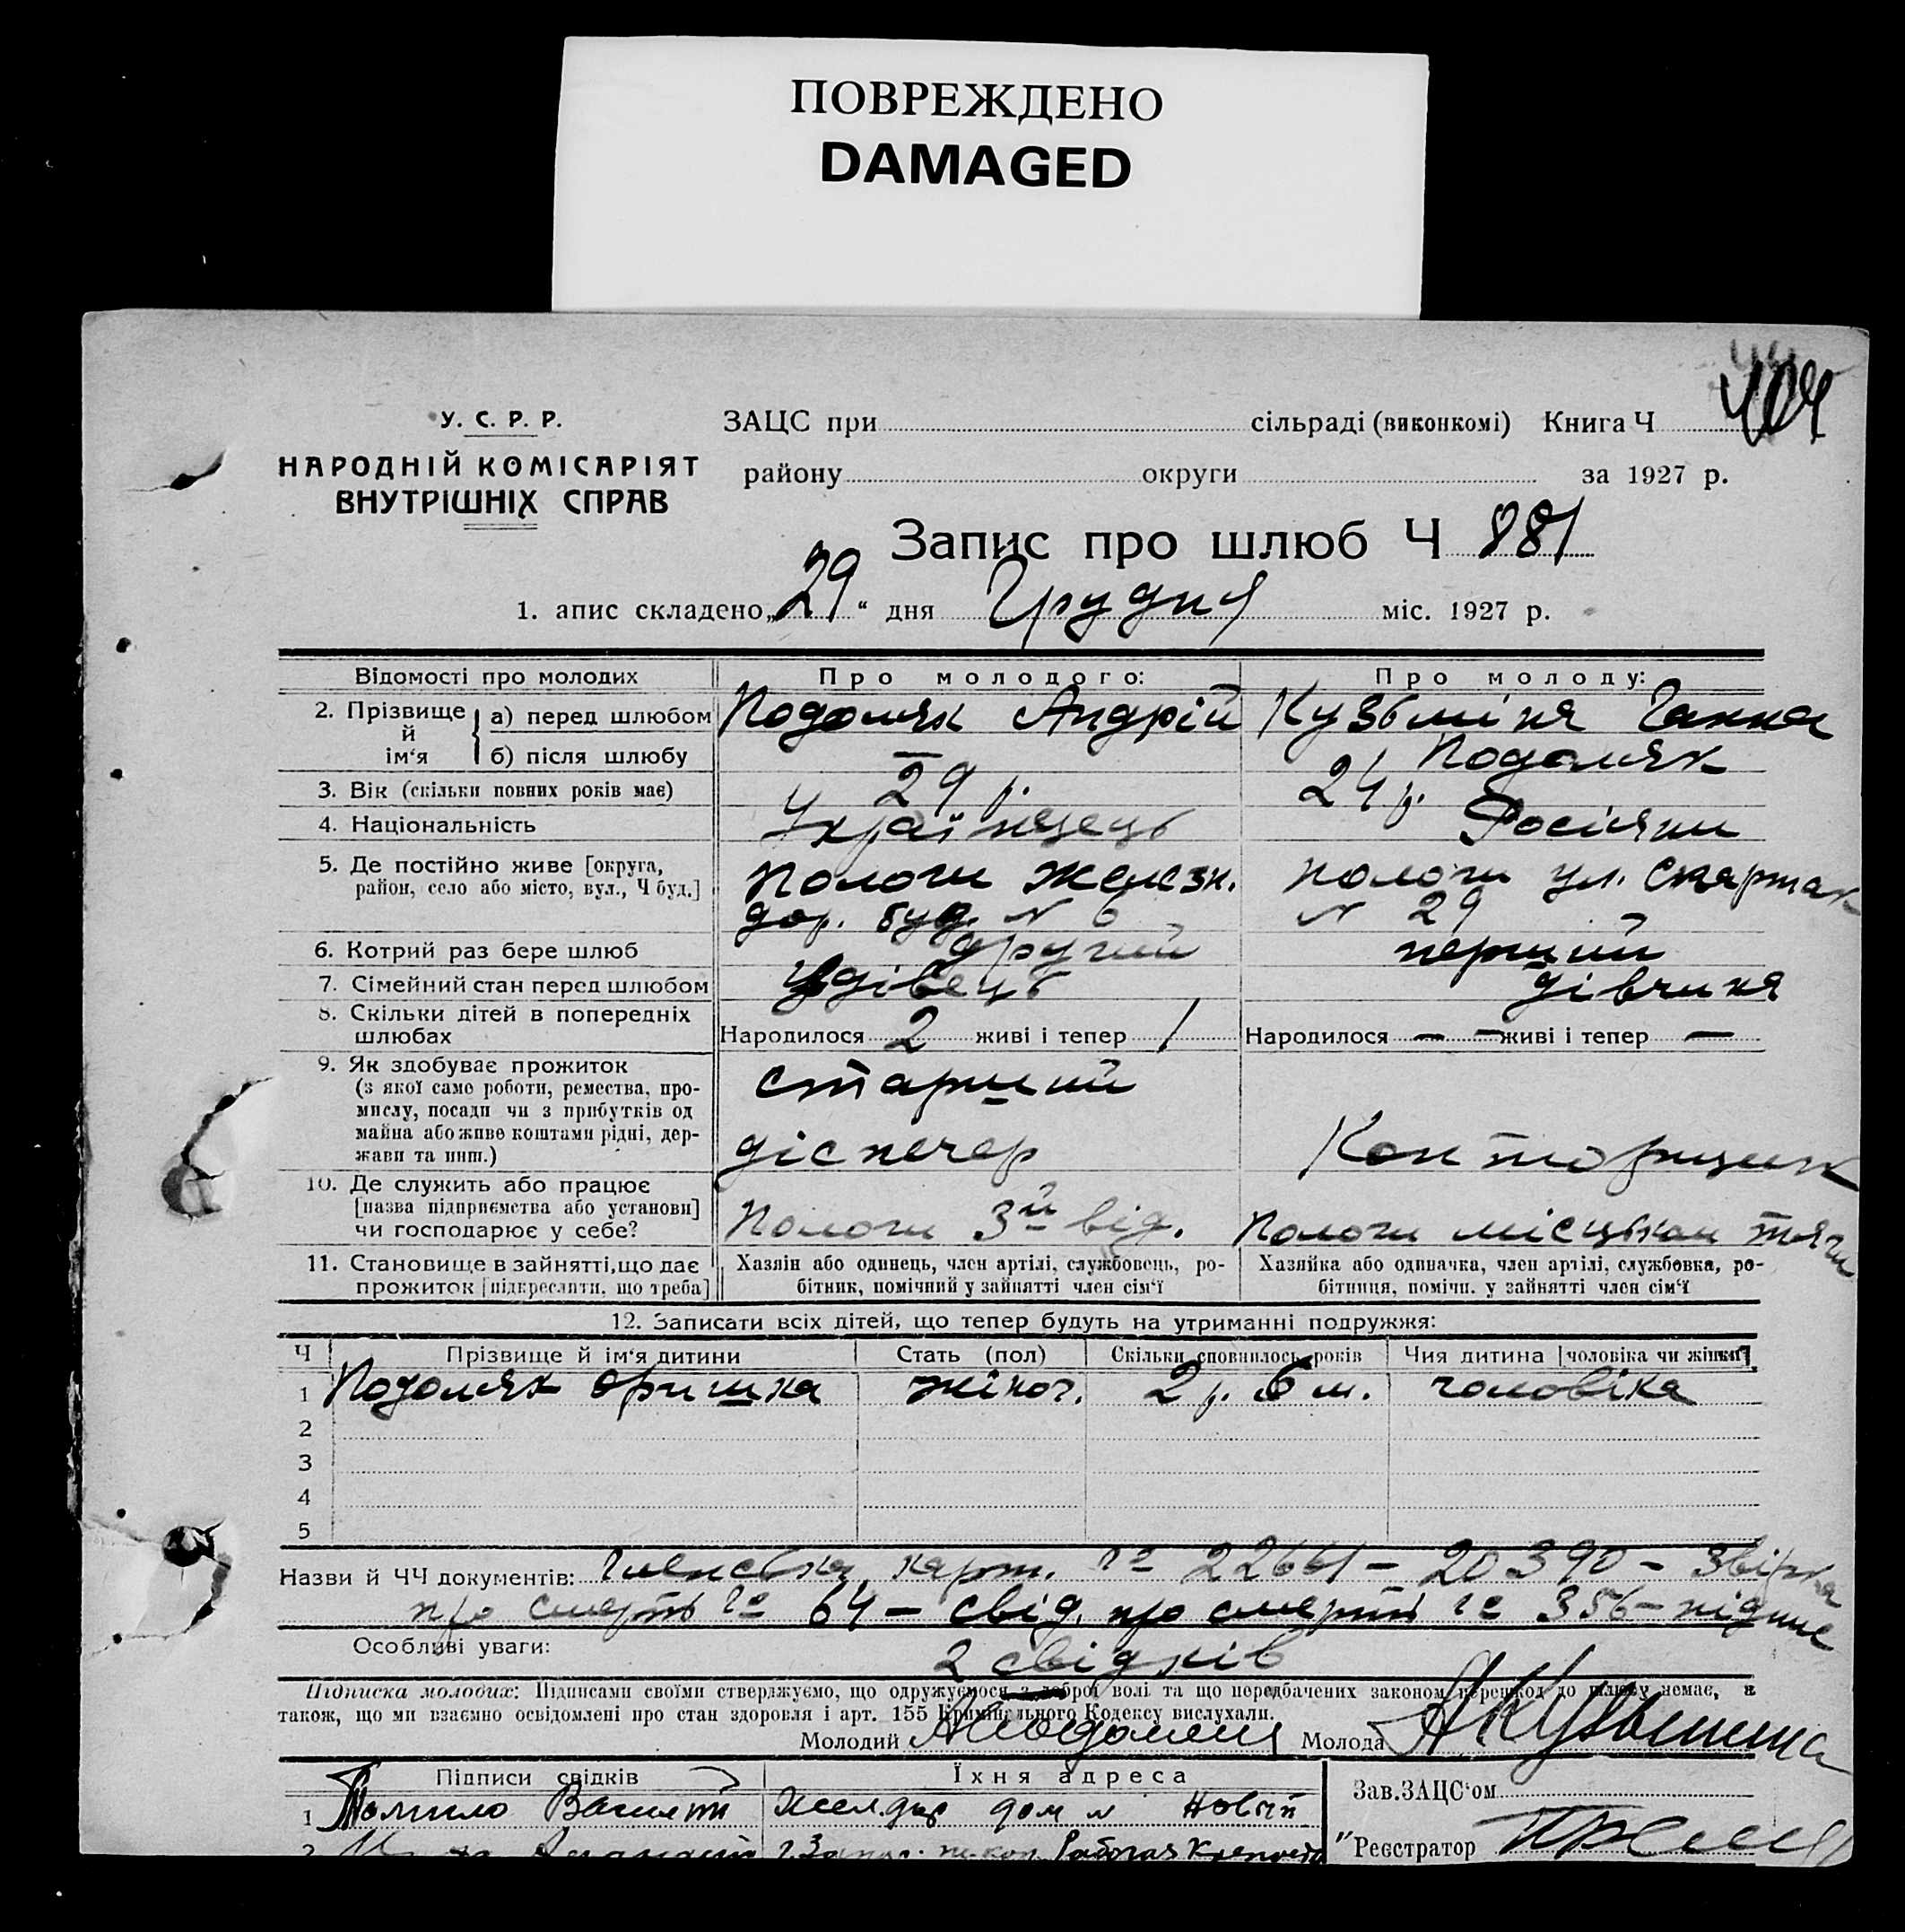 ПОВРЕЖДЕНО
DAMAGED
404
У. С. Р. Р.
НАРОДНІЙ КОМІСАРІЯТ
ВНУТРІШНІХ СПРАВ
ЗАЦС при сільраді (виконкомі) Книга Ч
району округи за 1927 р.
Запис про шлюб Ч 881
1. апис складено „29“ дня Грудня міс. 1927 р.
Відомості про молодих Про молодого: Про молоду:
2. Прізвище й ім‘я а) перед шлюбом Подомяк Андрій Кузьміня Ганна
б) після шлюбу — Подомяк
3. Вік (скільки повних років має) 29 р. 24 р.
4. Національність Українець Росіяни
5. Де постійно живе [округа, район, село або місто, вул., Ч буд.] Пологи железн. Пологи ул. Спартак
дор. буд. № 6 № 29
6. Котрий раз бере шлюб другий перший
7. Сімейний стан перед шлюбом Удівець дівчиня
8. Скільки дітей в попередніх шлюбах Народилося 2 живі і тепер 1 Народилося — — живі і тепер —
9. Як здобуває прожиток старший
(з якої саме роботи, ремества, промислу, посади чи з прибутків од майна або живе коштами рідні, держави та инш.) діспечер Конторщик
10. Де служить або працює [назва підприємства або установи] чи господарює у себе? Пологи 3й від. Пологи місцьком тяги
11. Становище в зайнятті, що дає прожиток [підкреслити, що треба] Хазяїн або одинець, член артілі, службовець, робітник, помічний у зайнятті член сім‘ї Хазяйка або одиначка, член артілі, службовка, робітниця, помічн. у зайнятті член сім‘ї
12. Записати всіх дітей, що тепер будуть на утриманні подружжя:
Ч Прізвище й ім‘я дитини Стать (пол) Скільки сповнилось років Чия дитина [чоловіка чи жінки]
1 Подомяк Оришка жіноч. 2 р. 6 м. чоловіка
2
3
4
5
Назви й ЧЧ документів: Членська карт. № 22661 – 20390 –
про смерть № 64 – свід. про смерть № 356 –
Особливі уваги: 2 свідків
Підписка молодих: Підписами своїми стверджуємо, що одружуємося з доброї волі та що передбачених законом перешкод до шлюбу немає, а
також, що ми взаємно освідомлені про стан здоровля і арт. 155 Кримінального Кодексу вислухали.
Молодий Молода АКузьмина
Підписи свідків Їхня адреса Зав.ЗАЦС‘ом
1 дом № Новый
2 Рабочая
Реєстратор